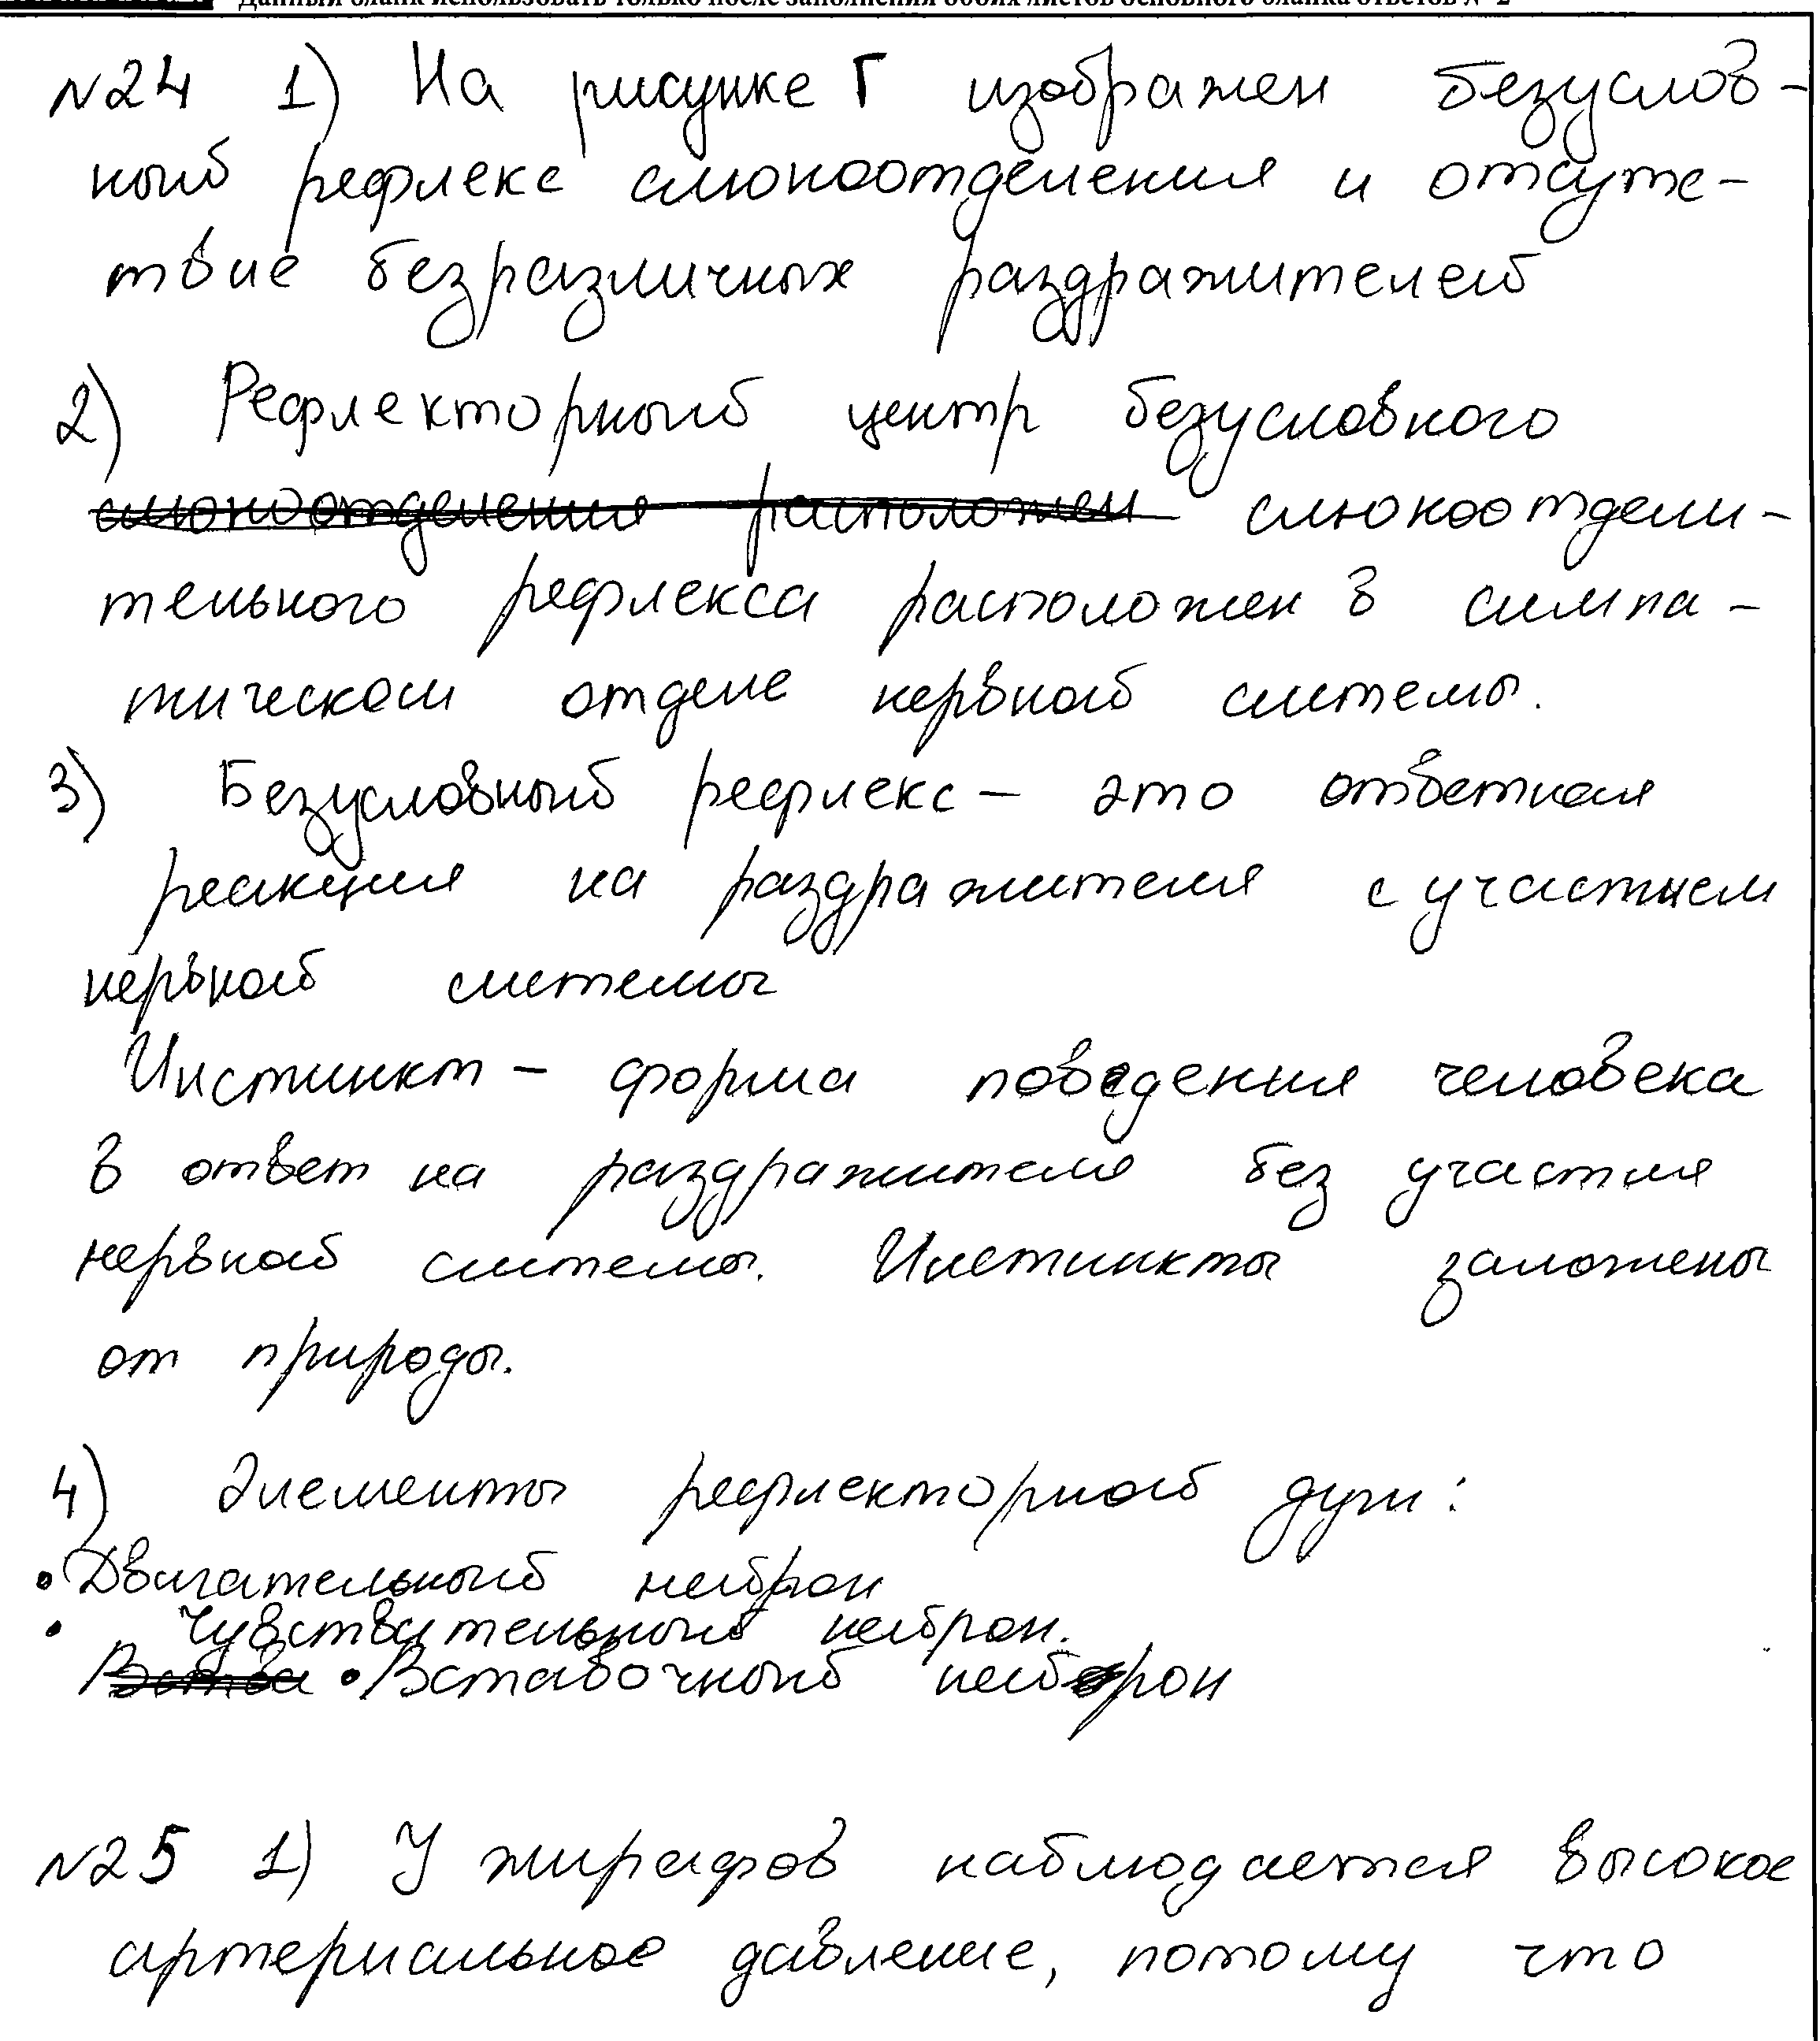 Данный бланк использовать только после заполнения обоих листов основного бланка ответов № 2
№24 1) На рисунке Г изображен безуслов-
ный рефлекс слюноотделения и отсутс-
твие безразличных раздражителей
2) Рефлекторный центр безусловного
слюноотделения расположен слюноотдели-
тельного рефлекса расположен в симпа-
тическом отделе нервной системы.
3) Безусловный рефлекс – это ответная
реакция на раздражителя с участием
нервной системы
Инстинкт – форма поведения человека
в ответ на раздражителя без участия
нервной системы. Инстинкты заложены
от природы.
4) Элементы рефлекторной дуги:
• Двигательный нейрон
• Чувствительный нейрон.
• Вставочный нейрон
№25 1) У жирафов наблюдается высокое
артериальное давление, потому что